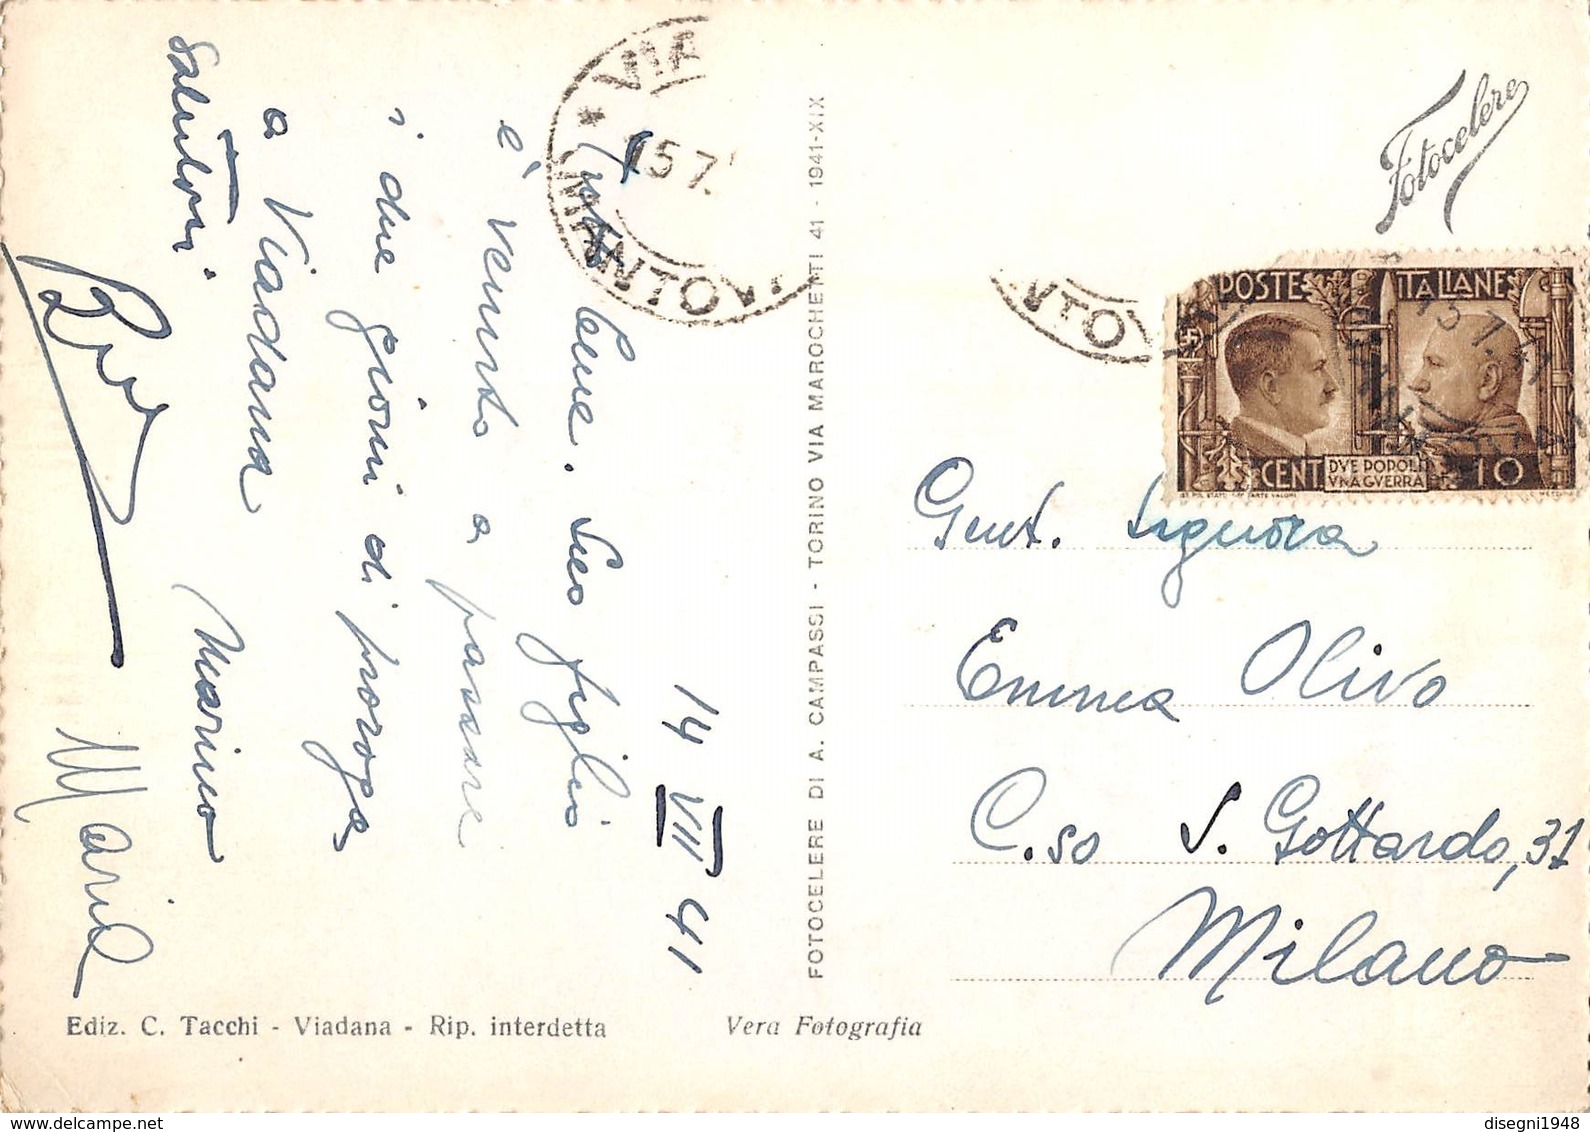 14 VII 41
Tutto bene. Suo figlio
è venuto a passare
i due giorni di proroga
a Viadana
Salutoni
Marino
Maria
Ediz. C. Tacchi - Viadana - Rip. interdetta
Vera Fotografia
FOTOCELERE DI A. CAMPASSI - TORINO VIA MAROCHETTI 41 - 1941-XIX
VIA
15 7.
MANTOVA
Fotocelere
POSTE ITALIANE
CENT 10
DVE POPOLI
VNA GVERRA
15.7.41
Gent. Signora
Emma Olivo
C.so S. Gottardo, 31
Milano
disegni1948